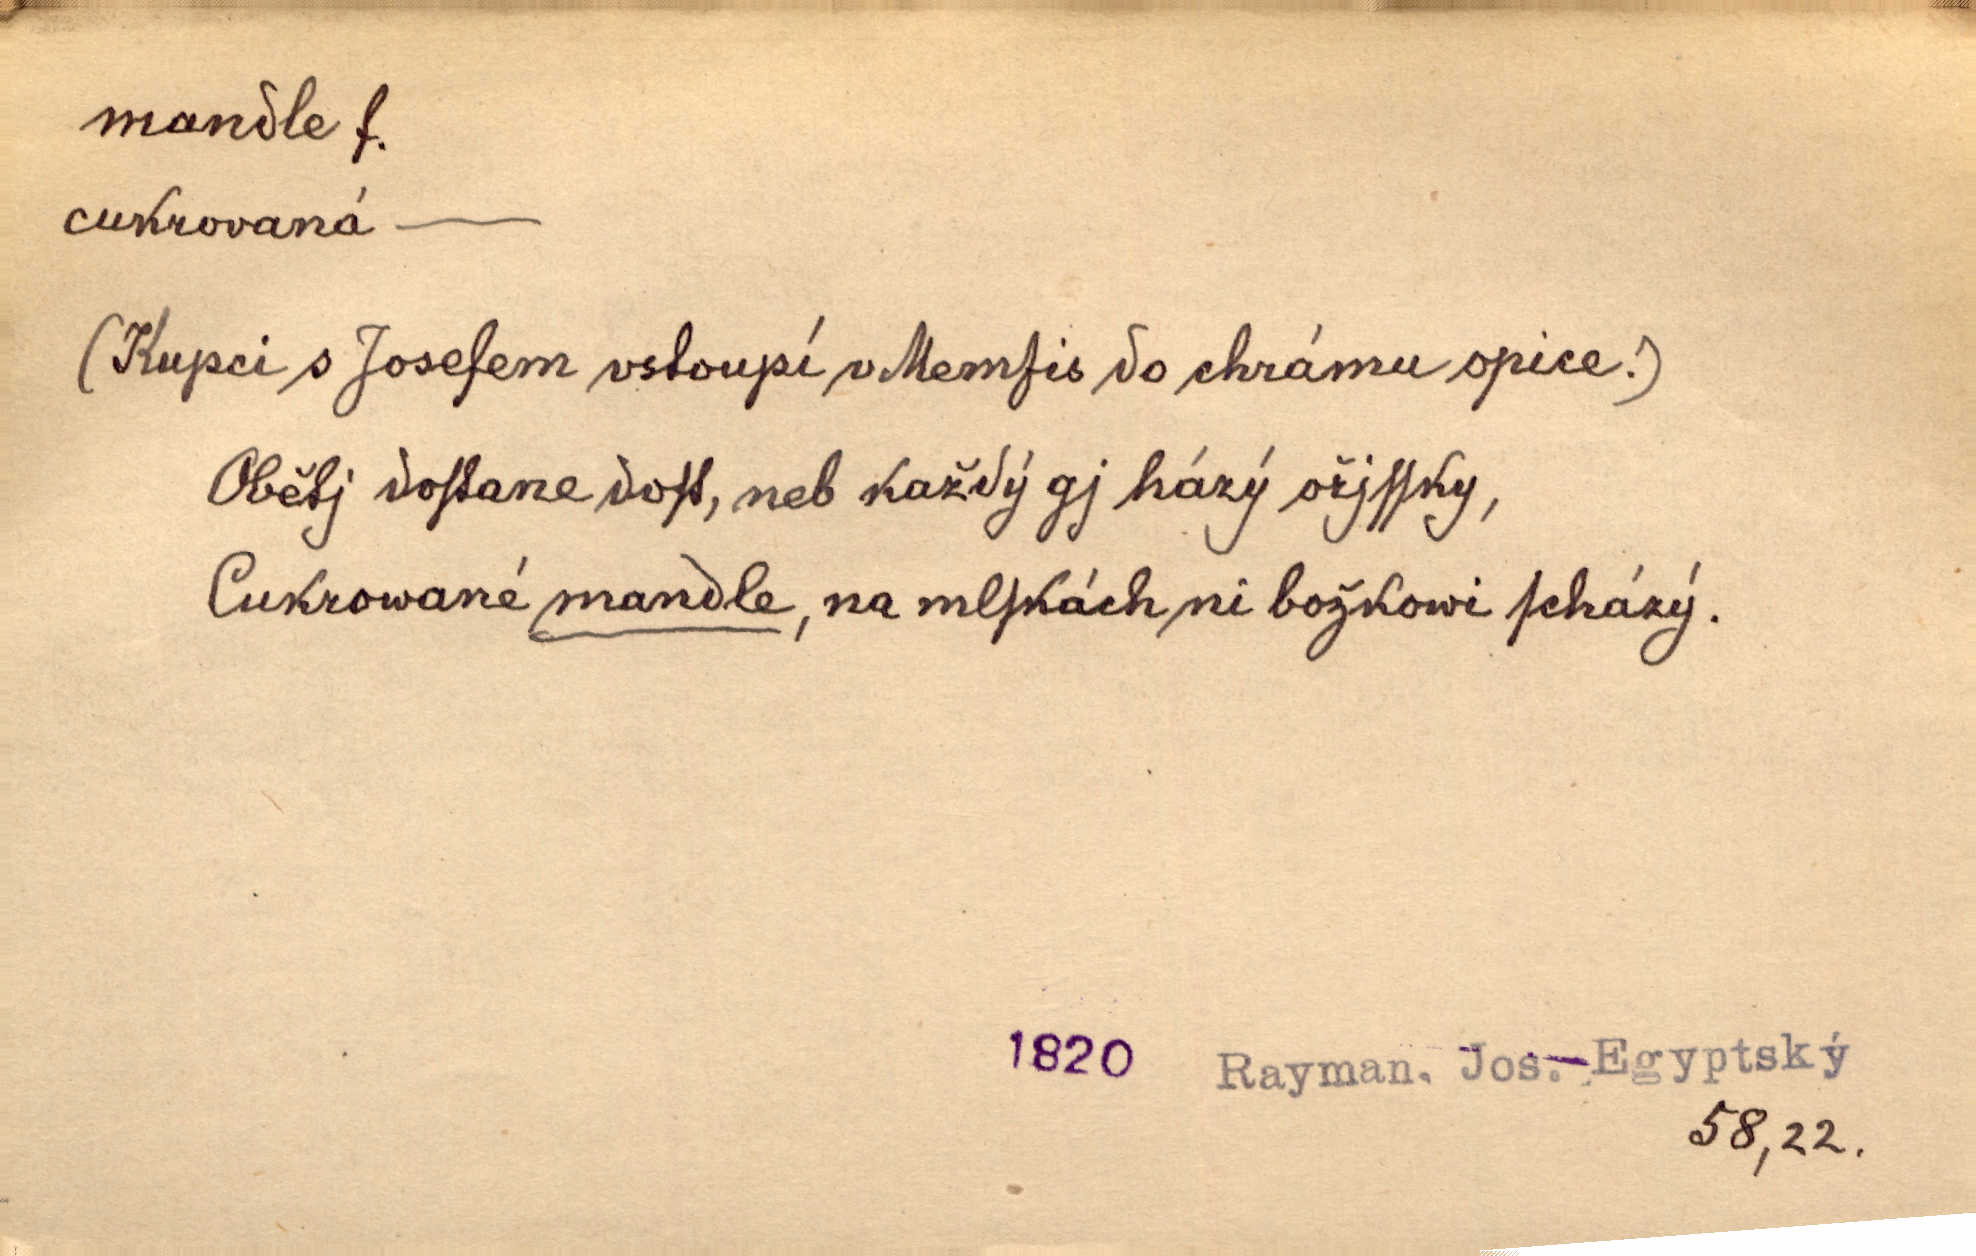 mandle f.
cukrovaná —
(Kupci s Josefem vstoupí v Memfis do chrámu opice:)
Obětj doſtane doſt, neb každý gj házý ořjſſky,
Cukrowané mandle, na mlſkách ni božkowi ſcházý.
1820 Rayman. Jos. Egyptský
58,22.